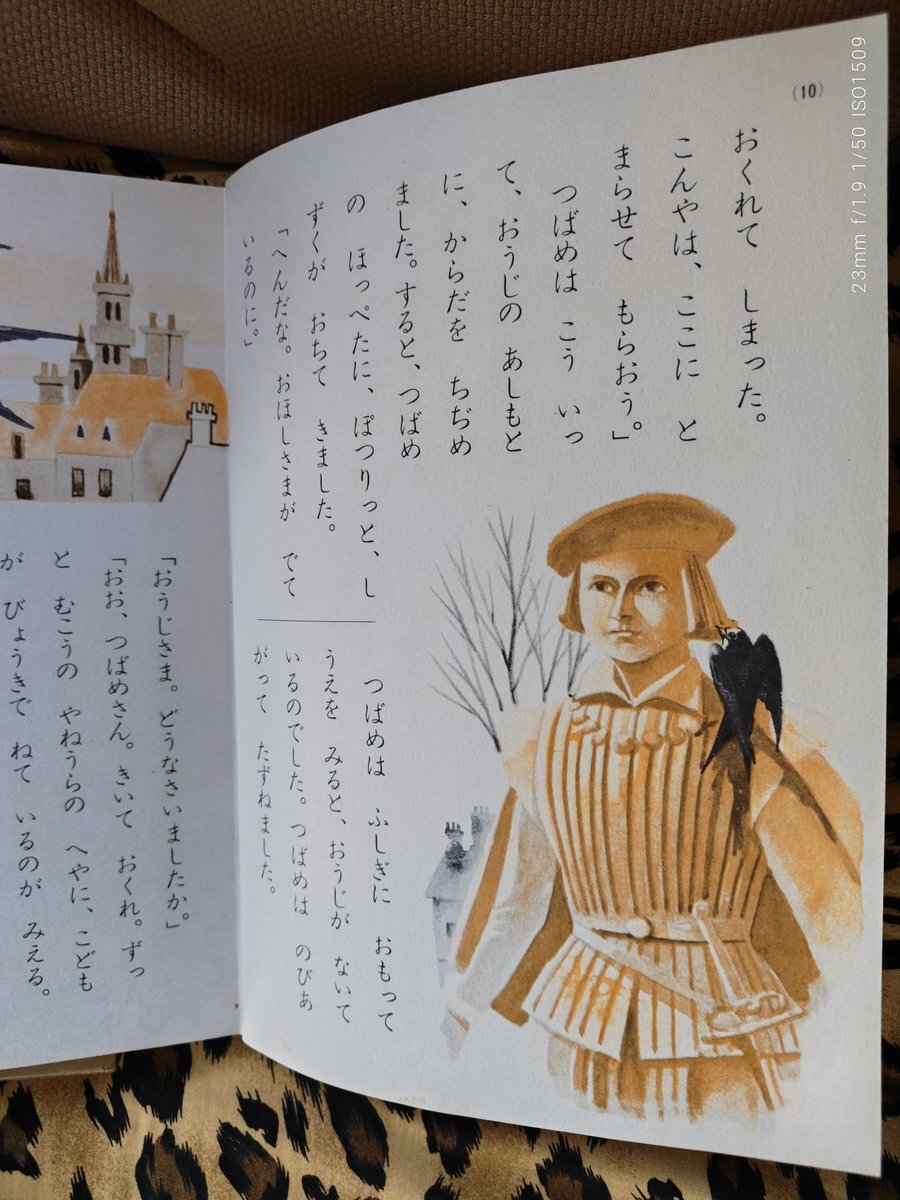 (10)
おくれて しまった。
こんやは、ここに と
まらせて もらおう。」
つばめは こう いっ
て、おうじの あしもと
に、からだを ちぢめ
ました。すると、つばめ
の ほっぺたに、ぽつりっと、し
ずくが おちて きました。
「へんだな。おほしさまが でて
いるのに。」
つばめは ふしぎに おもって
うえを みると、おうじが ないて
いるのでした。つばめは のびあ
がって たずねました。
「おうじさま。どうなさいましたか。」
「おお、つばめさん。きいて おくれ。ずっ
と むこうの やねうらの へやに、こども
が びょうきで ねて いるのが みえる。
23mm f/1.9 1/50 ISO1509